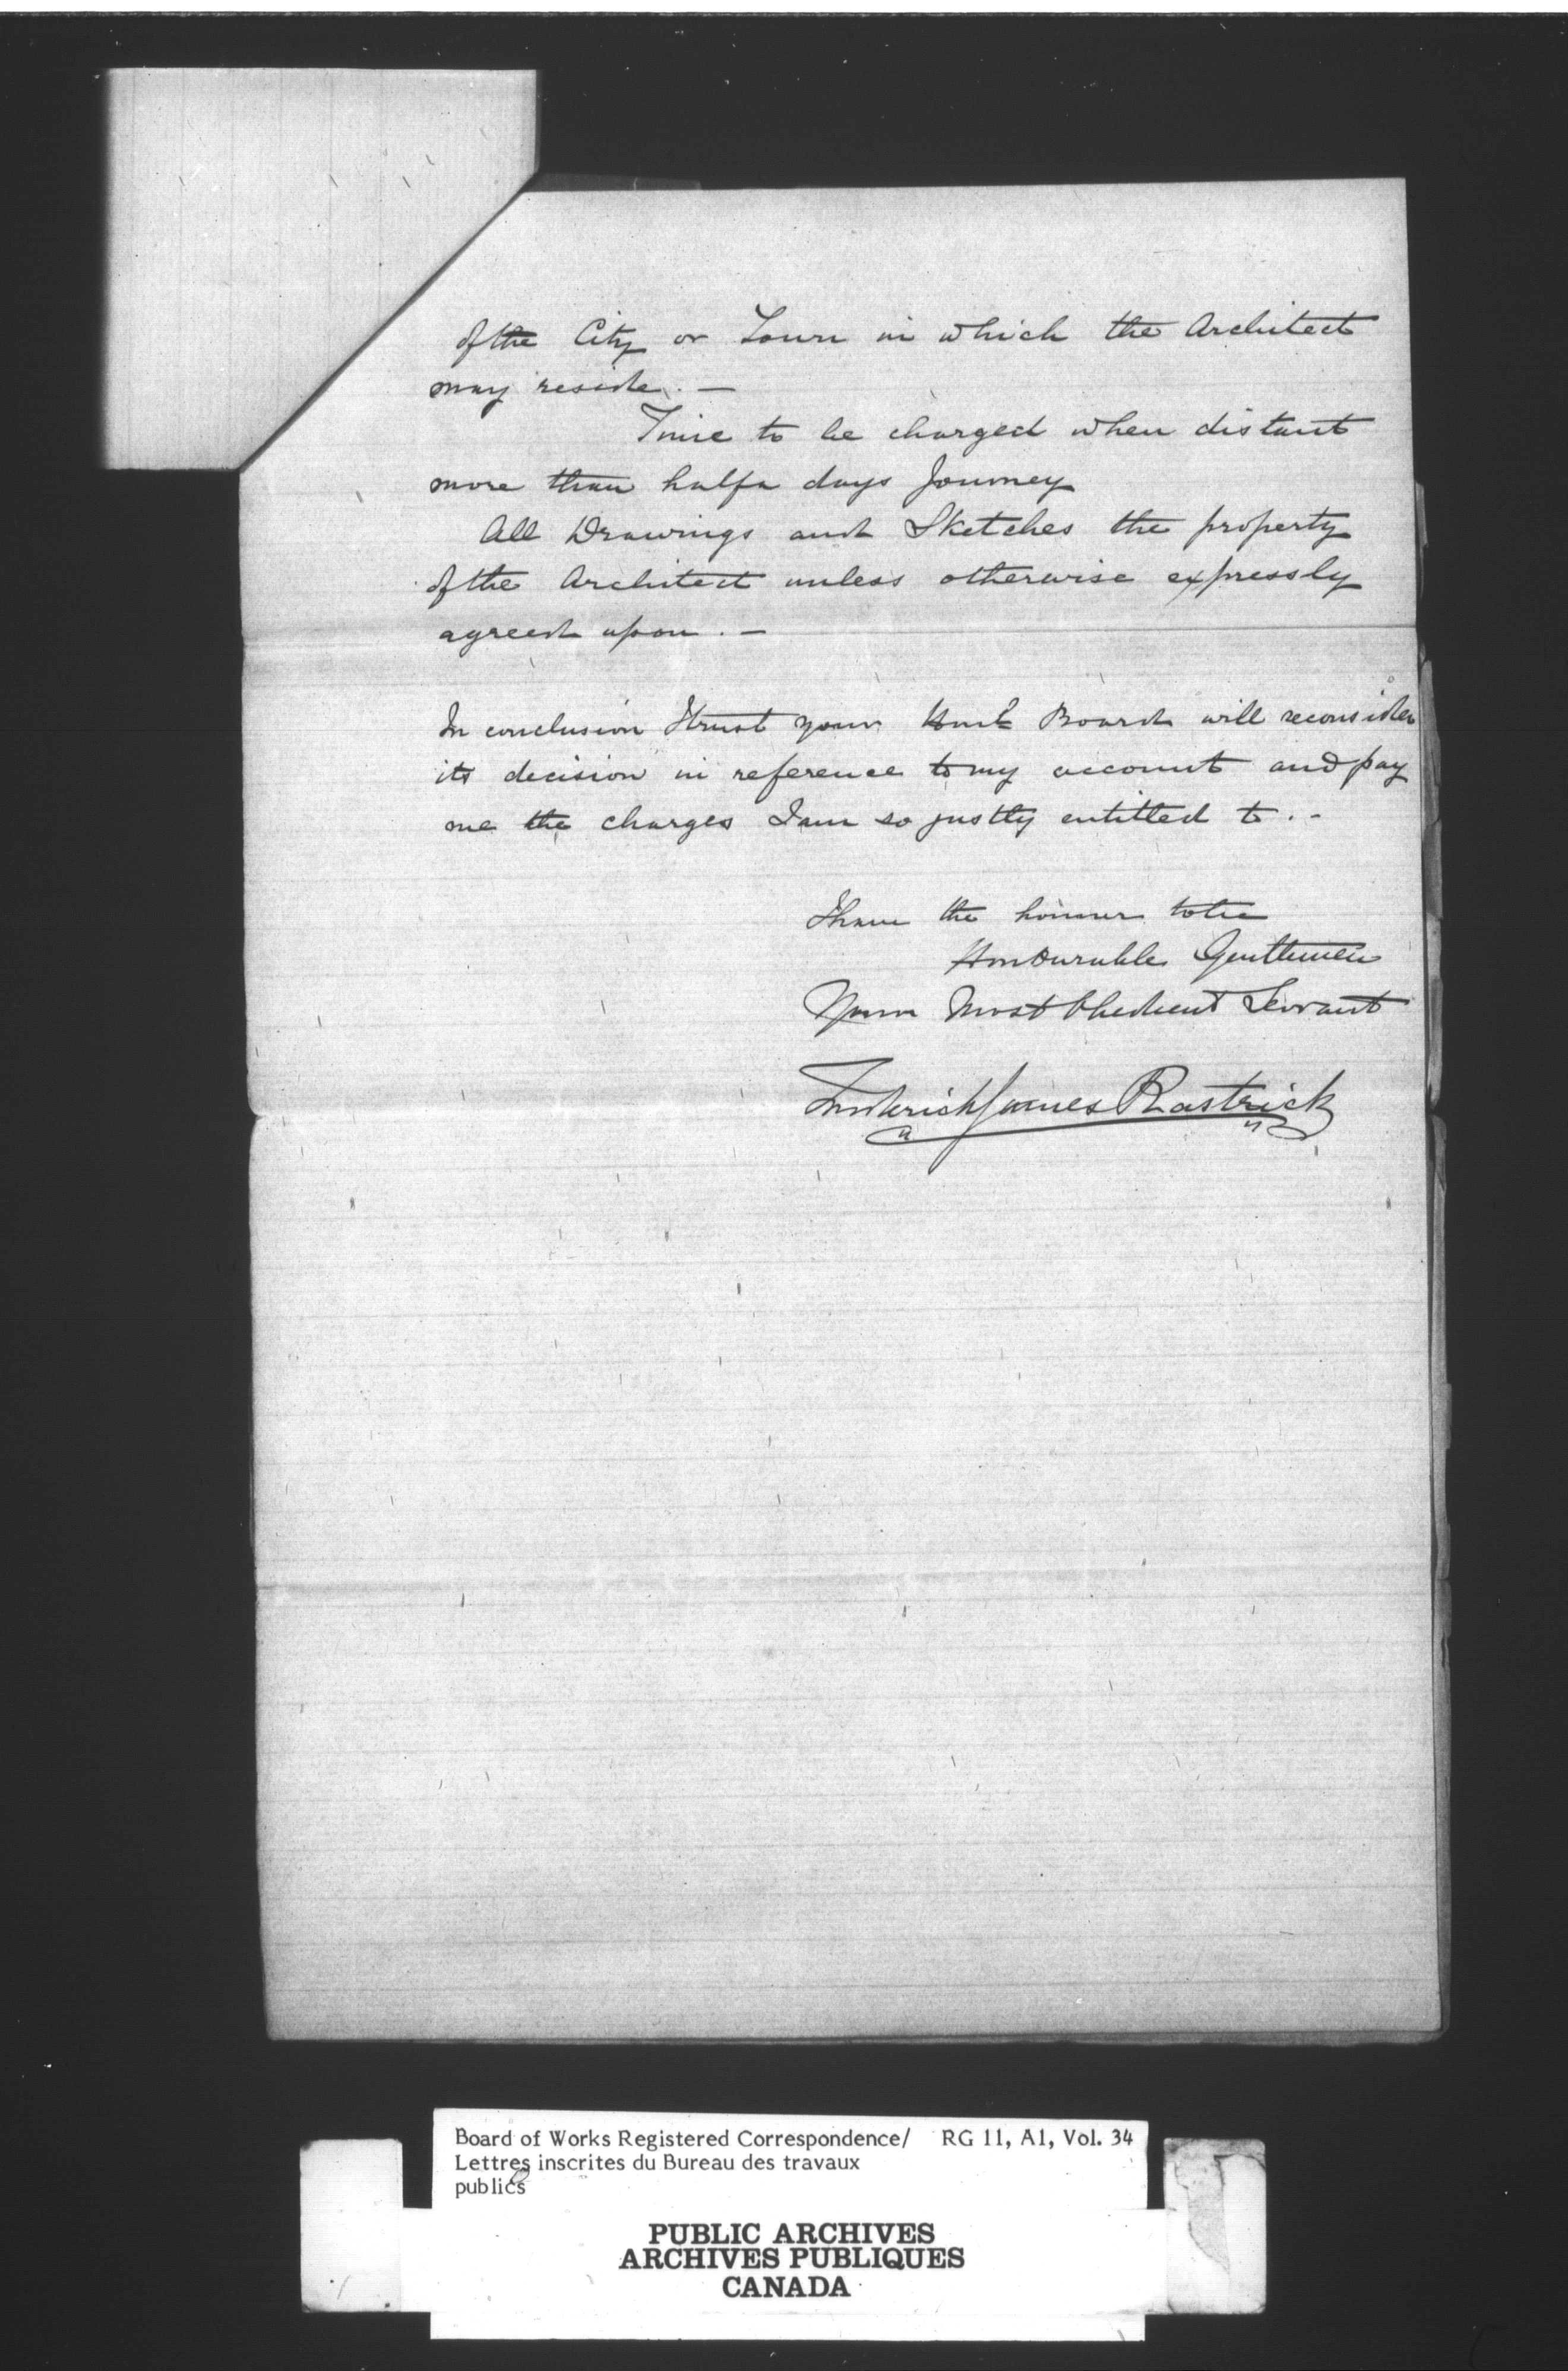 of the City or Town in which the Architect
may reside. —
Time to be charged when distant
more than half a days Journey
All Drawings and Sketches the property
of the Architect unless otherwise expressly
agreed upon. —
In conclusion I trust your Honble Board will reconsider
its decision in reference to my account and pay
me the charges I am so justly entitled to. -
I have the honour to be
Honourable Gentlemen
Your Most Obedient Servant
Frederick James Rastrick
Board of Works Registered Correspondence/ RG 11, A1, Vol. 34
Lettres inscrites du Bureau des travaux
publics
PUBLIC ARCHIVES
ARCHIVES PUBLIQUES
CANADA